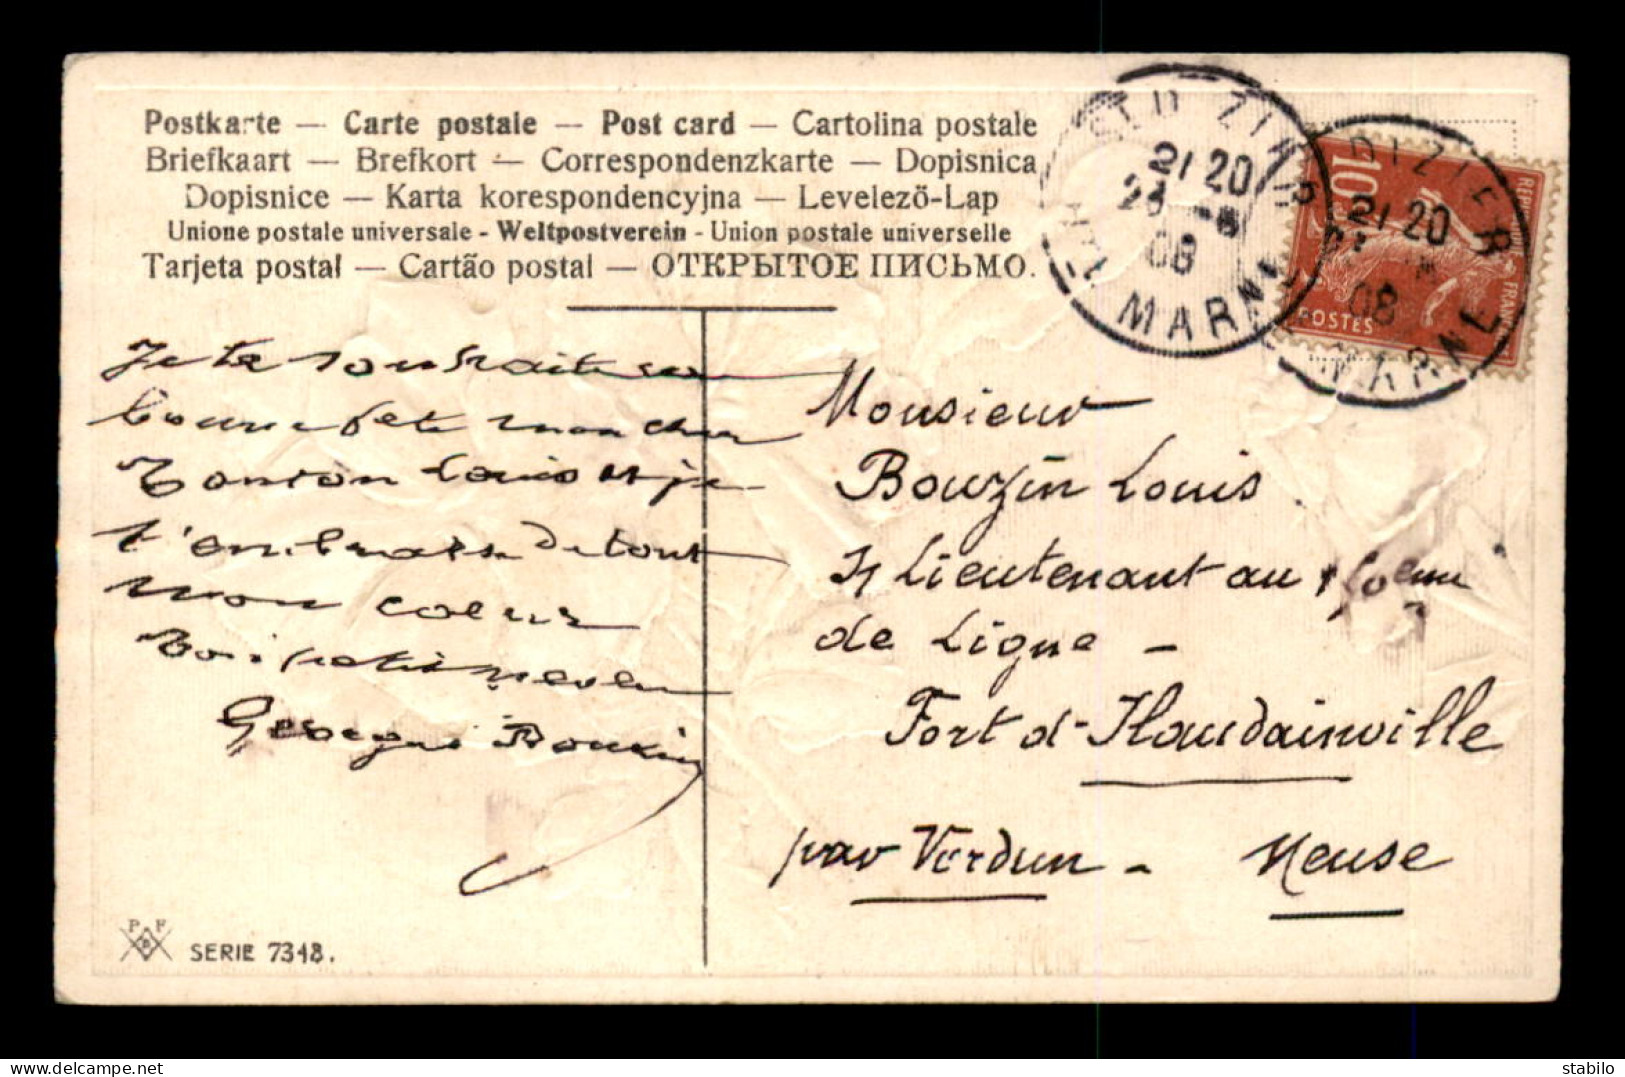 Postkarte — Carte postale — Post card — Cartolina postale
Briefkaart — Brefkort — Correspondenzkarte — Dopisnica
Dopisnice — Karta korespondencyjna — Levelezö-Lap
Unione postale universale - Weltpostverein - Union postale universelle
Tarjeta postal — Cartão postal — ОТКРЫТОЕ ПИСЬМО.
Je te souhaite une
bonne fete mon cher
Tonton Louis et je
t'embrasse de tout
mon coeur
Ton petit neveu
Georges Bouzin
Monsieur
Bouzin Louis
Lieutenant au
de Ligne -
Fort d'Haudainville
par Verdun - Meuse
21 20
08
MARNE
DIZIER
21 20
08
MARNE
10
POSTES
P F
SERIE 7348.
stabilo
www.delcampe.net